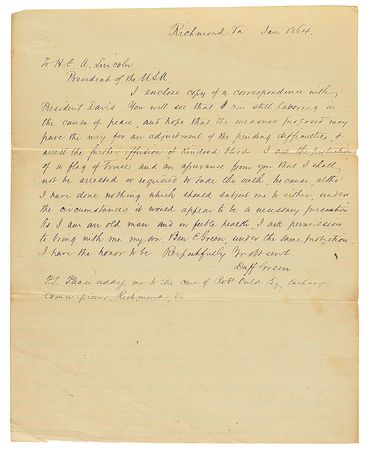 Richmond Va Jan 1864.
To H.E. A. Lincoln
President of the U.S.A
I enclose copy of a correspondence with
President Davis. You will see that I am still laboring in
the cause of peace, and hope that the measure proposed may
pave the way for an adjustment of the pending difficulties, &
arrest the further effusion of kindred blood. I ask the protection
of a flag of truce and an assurance from you that I shall
not be arrested or required to take the oath, because, altho
I have done nothing which should subject me to either, under
the circumstances it would appear to be a necessary precaution.
As I am an old man and in feeble health, I ask permission
to bring with me my son, Ben E Green, under the same protection.
I have the honor to be Respectfully Yr obt sert
Duff Green
P.S. Please address me to the care of Robt Ould Esq, Exchange
Commissioner, Richmond, Va.